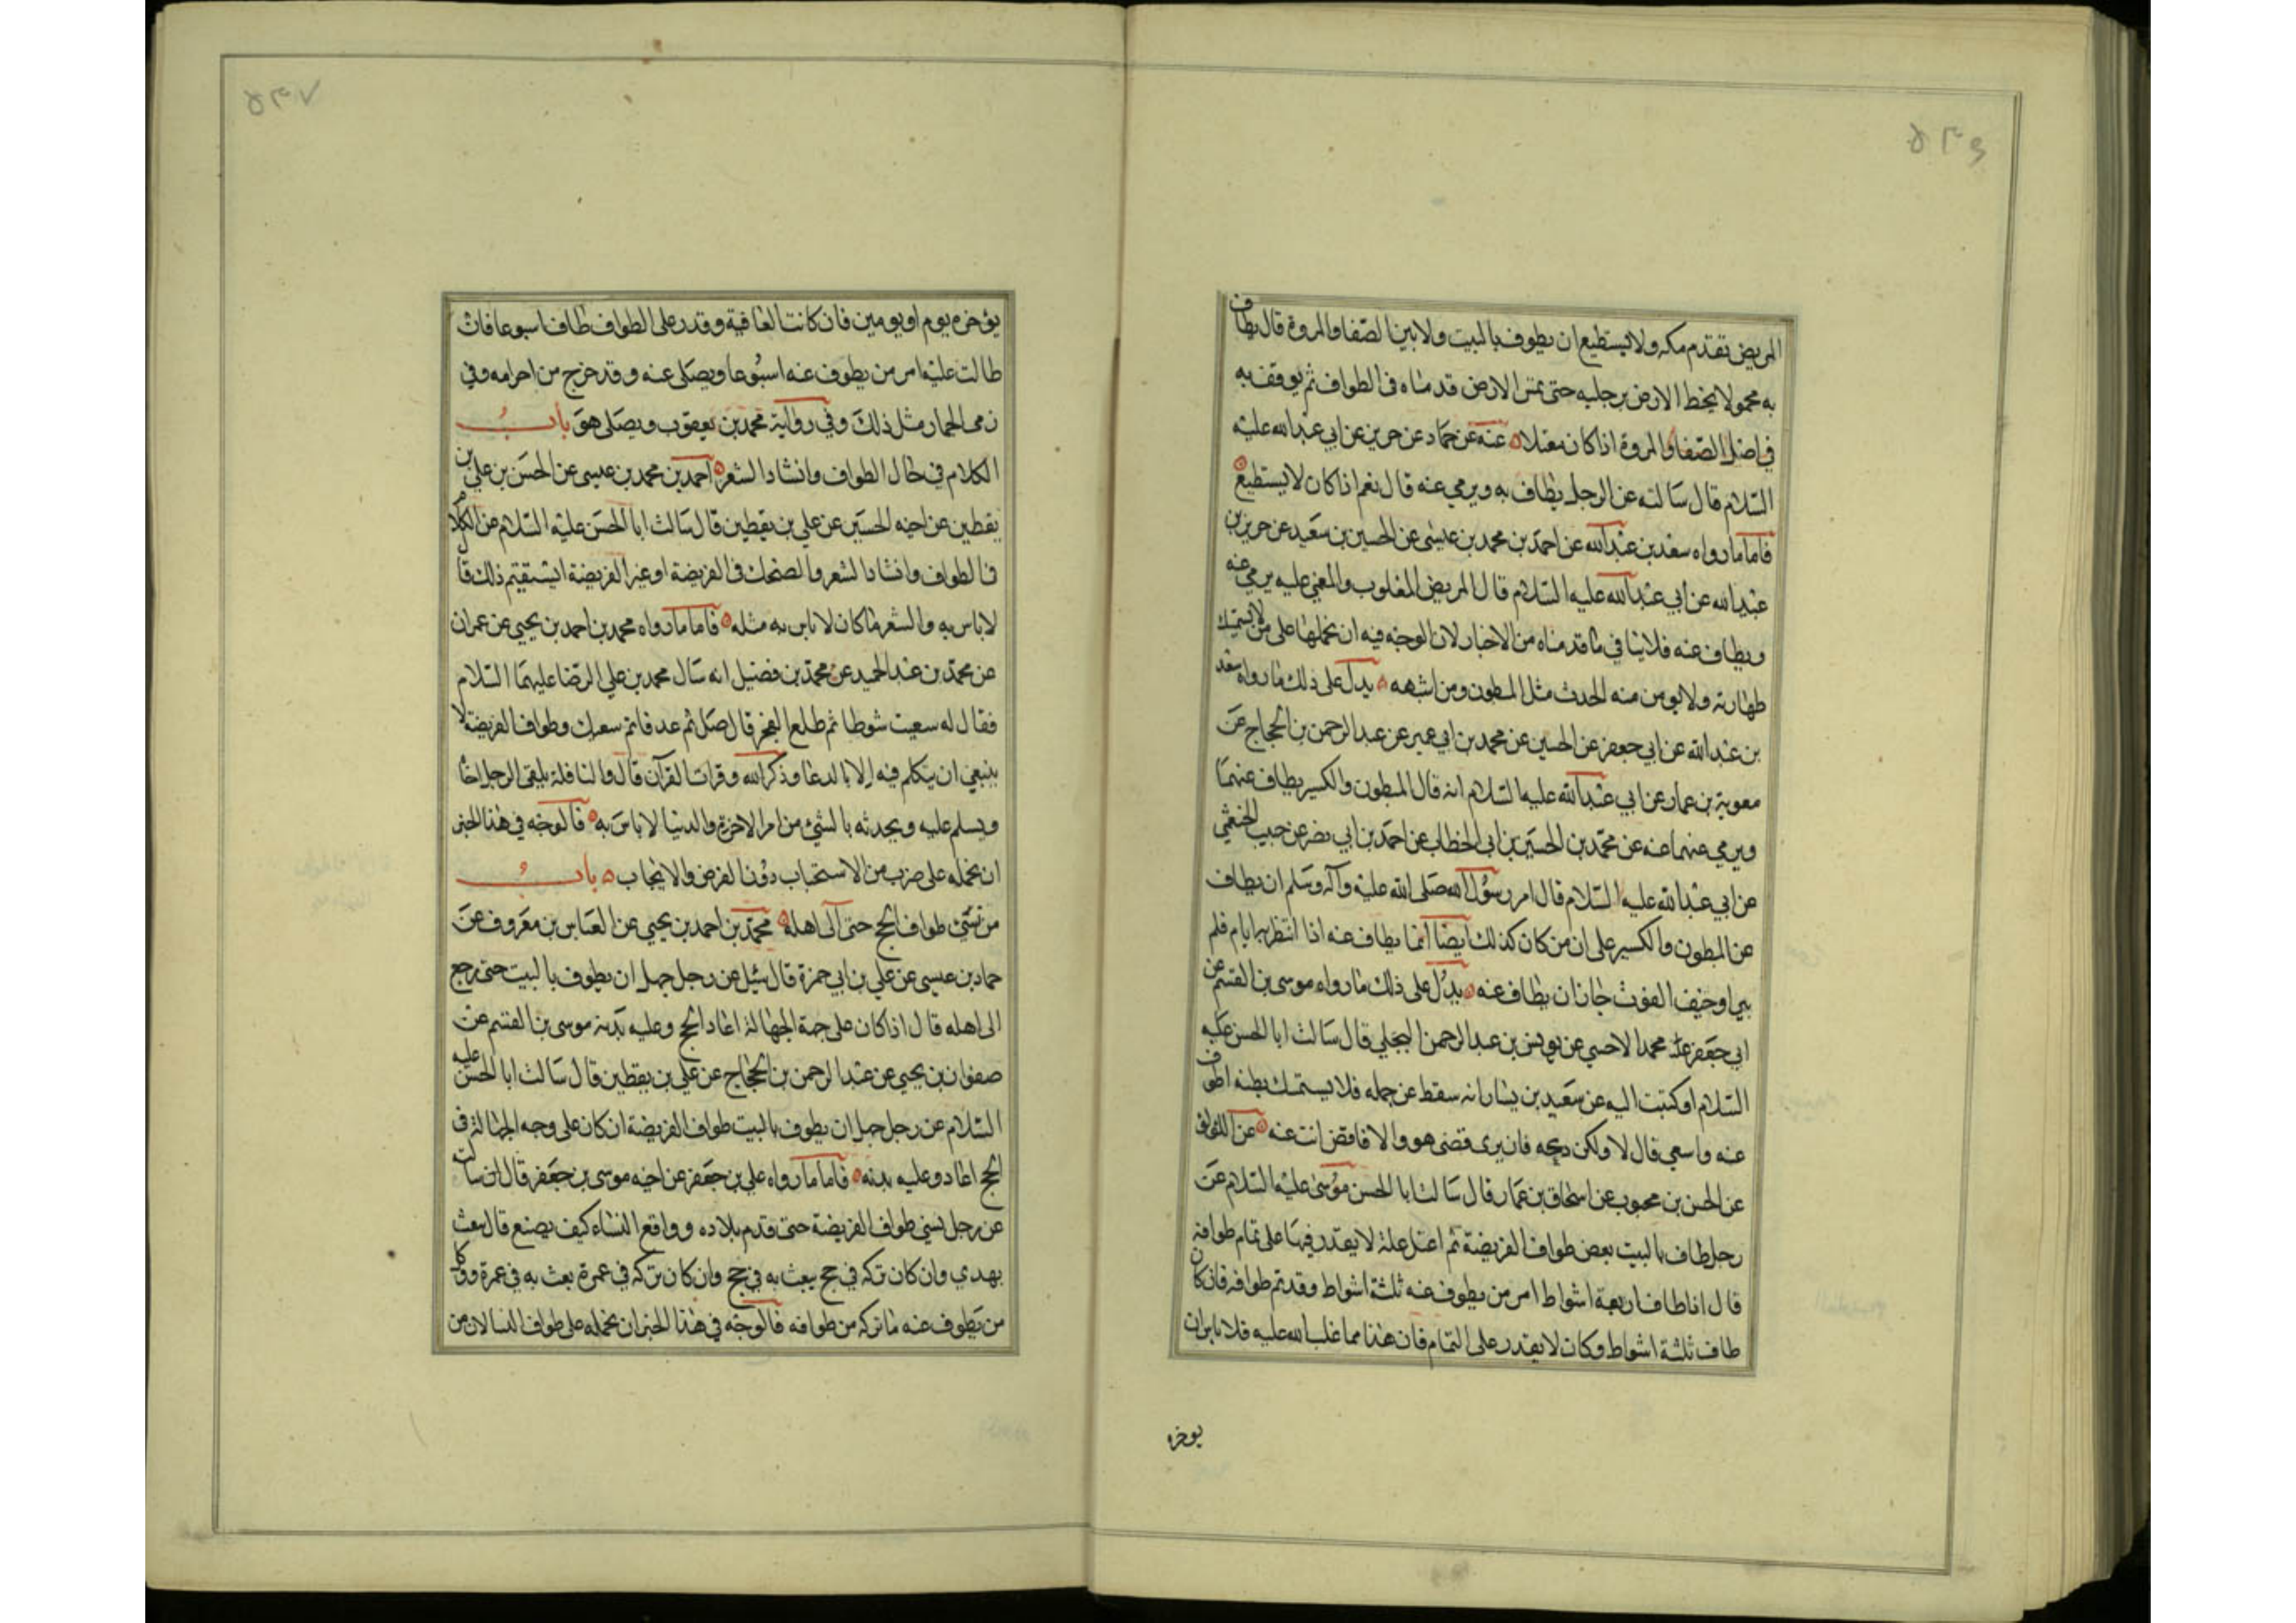 المريض تقدم مكه ولا يستطيع ان يطوف بالبيت ولا بين الصفا والمروة قال يطاف
به محمولا يخط الارض برجليه حتى تمس الارض قدماه فى الطواف ثم يوقف به
في اصل الصفا والمروة اذا كان معتلا عنه عن حماد عن حريز عن ابي عبدالله عليه
السلام قال سالته عن الرجل يطاف به ويرمي عنه قال نعم اذا كان لا يستطيع
فاما ما رواه سعد بن عبدالله عن احمد بن محمد بن عيسى عن الحسين بن سعيد عن حريز بن
عبدالله عن أبي عبدالله عليه السلام قال المريض المغلوب والمغمى عليه يرمي عنه
ويطاف عنه فلا ينافي ما قدمناه من الاخبار لان الوجه فيه ان نحملها على من لا يستمسك
طهارته ولا يومن منه الحدث مثل المبطون ومن اشبهه يدل على ذلك ما رواه سعد
بن عبدالله عن ابي جعفر عن الحسين عن محمد بن ابي عمير عن عبدالرحمن بن الحجاج عن
معوية بن عمار عن ابي عبدالله عليه السلام انه قال المبطون والكسير يطاف عنهما
ويرمي عنهما عنه عن محمد بن الحسين بن ابي الخطاب عن احمد بن ابي نصر عن حبيب الخثعمي
عن ابي عبدالله عليه السلام قال امر رسول الله صلى الله عليه وآله وسلم ان يطاف
عن المبطون والكسير على ان من كان كذلك ايضا انما يطاف عنه اذا انتظر به ايام فلم
يبرا وخيف الفوت جاز ان يطاف عنه يدل على ذلك ما رواه موسى بن القسم عن
ابي جعفر محمد الاحمسي عن يونس بن عبدالرحمن البجلي قال سالت ابا الحسن عليه
السلام او كتبت اليه عن سعيد بن يسار انه سقط عن جمله فلا يستمسك بطنه اطوف
عنه واسعى قال لا ولكن دعه فان برى قضى هو والا فاقض انت عنه عن اللولوى
عن الحسن بن محبوب عن اسحاق بن عمار قال سالت ابا الحسن موسى عليه السلام عن
رجل طاف بالبيت بعض طواف الفريضة ثم اعتل علة لا يقدر فيها على تمام طوافه
قال اذا طاف اربعة اشواط امر من يطوف عنه ثلثة اشواط وقد تم طوافه فان كان
طاف ثلثة اشواط وكان لا يقدر على التمام فان هذا مما غلب الله عليه فلا باس ان
يوخره
يؤخره يوم او يومين فان كانت العافية وقدر على الطواف طاف اسبوعا فان
طالت عليه امر من يطوف عنه اسبوعا ويصلى عنه وقد خرج من احرامه وفي
رمى الجمار مثل ذلك وفي رواية محمد بن يعقوب ويصلى هو باب
الكلام في حال الطواف وانشاد الشعر احمد بن محمد بن عيسى عن الحسن بن علي بن
يقطين عن اخيه الحسين عن علي بن يقطين قال سالت ابا الحسن عليه السلام عن الكلام
فى الطواف وانشاد الشعر والضحك فى الفريضة او غير الفريضة ايستقيم ذلك قال
لا باس به والشعر ما كان لا باس به مثله فاما ما رواه محمد بن احمد بن يحيى عن عمران
عن محمد بن عبد الحميد عن محمد بن فضيل انه سال محمد بن علي الرضا عليهما السلام
فقال له سعيت شوطا ثم طلع الفجر قال صل ثم عد فاتم سعيك وطواف الفريضة لا
ينبغي ان يتكلم فيه الا بالدعا وذكر الله وقرات القرآن قال والنافلة يلقى الرجل اخا
ويسلم عليه ويحدثه بالشئ من امر الاخرة والدنيا لا باس به فالوجه في هذا الخبر
ان نحمله على ضرب من الاستحباب دون الفرض والايجاب باب
من نسى طواف الحج حتى آلى اهله محمد بن احمد بن يحيى عن العباس بن معروف عن
حماد بن عيسى عن علي بن ابي حمزة قال سئل عن رجل جهل ان يطوف بالبيت حتى رجع
الى اهله قال اذا كان على جهة الجهالة اعاد الحج وعليه بدنة موسى بن القسم عن
صفوان بن يحيى عن عبدالرحمن بن الحجاج عن علي بن يقطين قال سالت ابا الحسن عليه
السلام عن رجل جهل ان يطوف بالبيت طواف الفريضة ان كان على وجه الجهالة في
الحج اعاد وعليه بدنه فاما ما رواه علي بن جعفر عن اخيه موسى بن جعفر قال سالت
عن رجل نسي طواف الفريضة حتى قدم بلاده وواقع النساء كيف يصنع قال يبعث
بهدي وان كان تركه في حج يبعث به في حج وان كان تركه في عمرة بعث به في عمرة ووكل
من يطوف عنه ما تركه من طوافه فالوجه في هذا الخبر ان نحمله على طواف النسا لان من